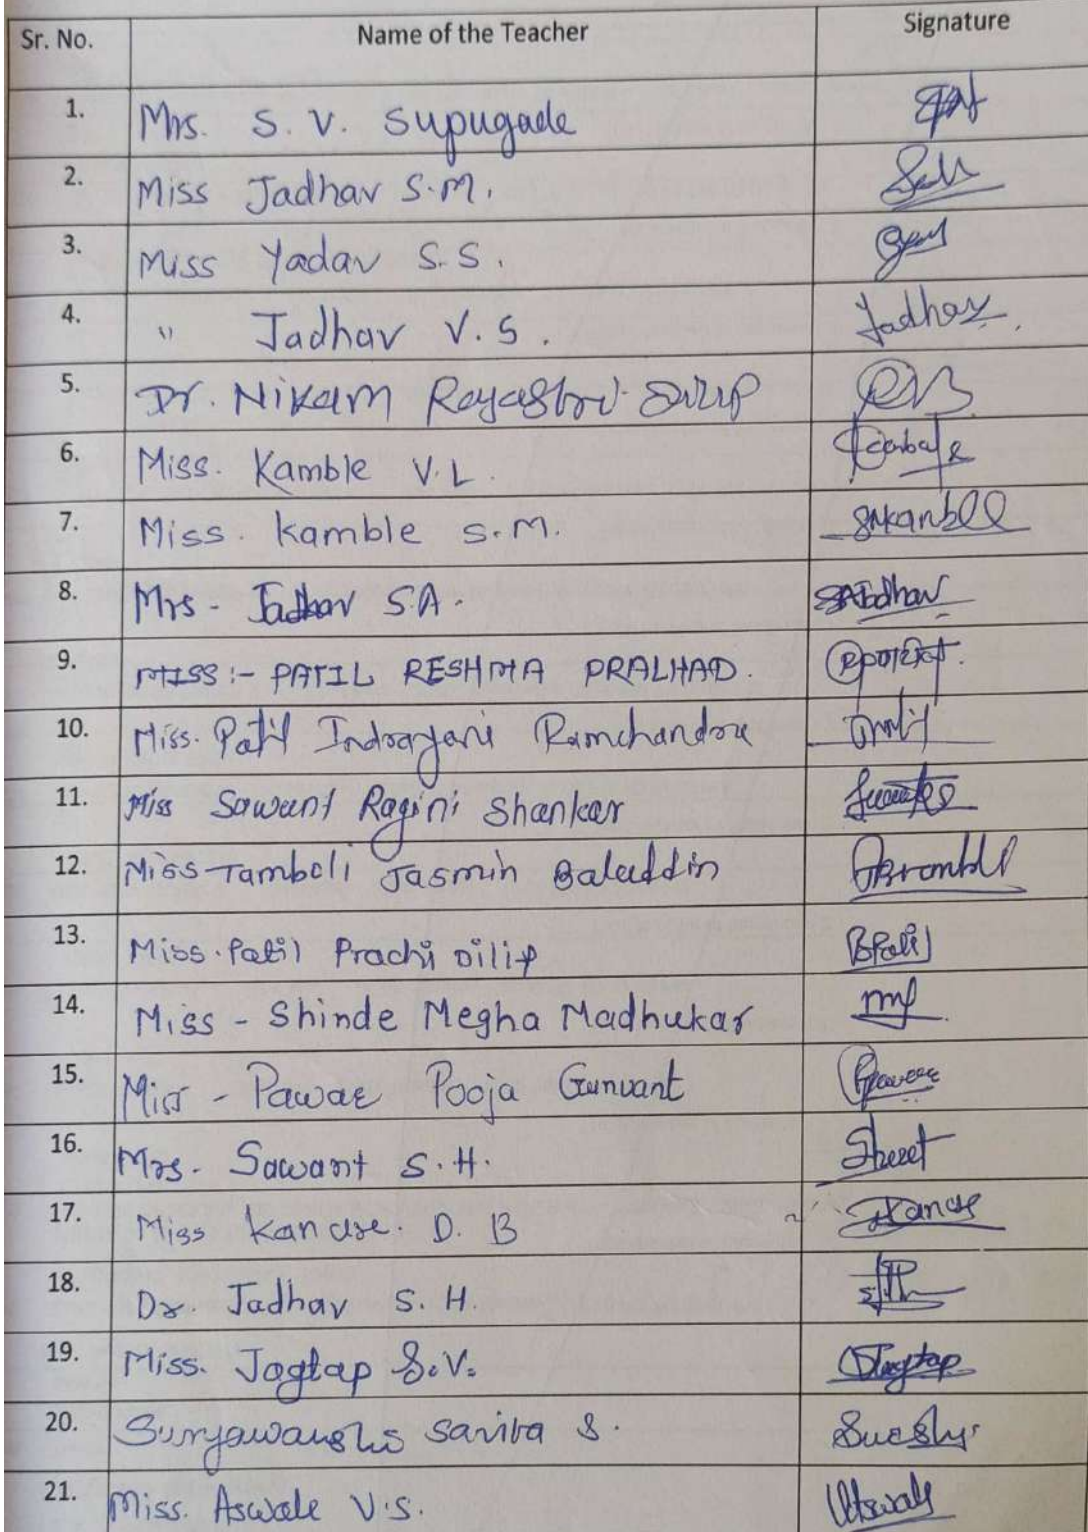 Sr. No. Name of the Teacher Signature
1. Mrs. S. V. Supugade
2. Miss Jadhav S.M.
3. Miss Yadav S.S.
4. " Jadhav V.S. Jadhav
5. Dr. Nikam Rajashri Dilip
6. Miss. Kamble V.L.
7. Miss. Kamble S.M. SMKamble
8. Mrs - Jadhav S.A. SAJadhav
9. MISS :- PATIL RESHMA PRALHAD.
10. Miss. Patil Indrayani Ramchandra
11. Miss Sawant Ragini Shankar
12. Miss Tamboli Jasmin Baladdin
13. Miss. Patil Prachi Dilip
14. Miss - Shinde Megha Madhukar
15. Miss - Pawar Pooja Gunvant
16. Mrs. Sawant S.H.
17. Miss Kanase. D. B
18. Dr. Jadhav S. H.
19. Miss. Jagtap S.V. Jagtap
20. Suryawanshi Sarita S.
21. Miss. Aswale V.S.